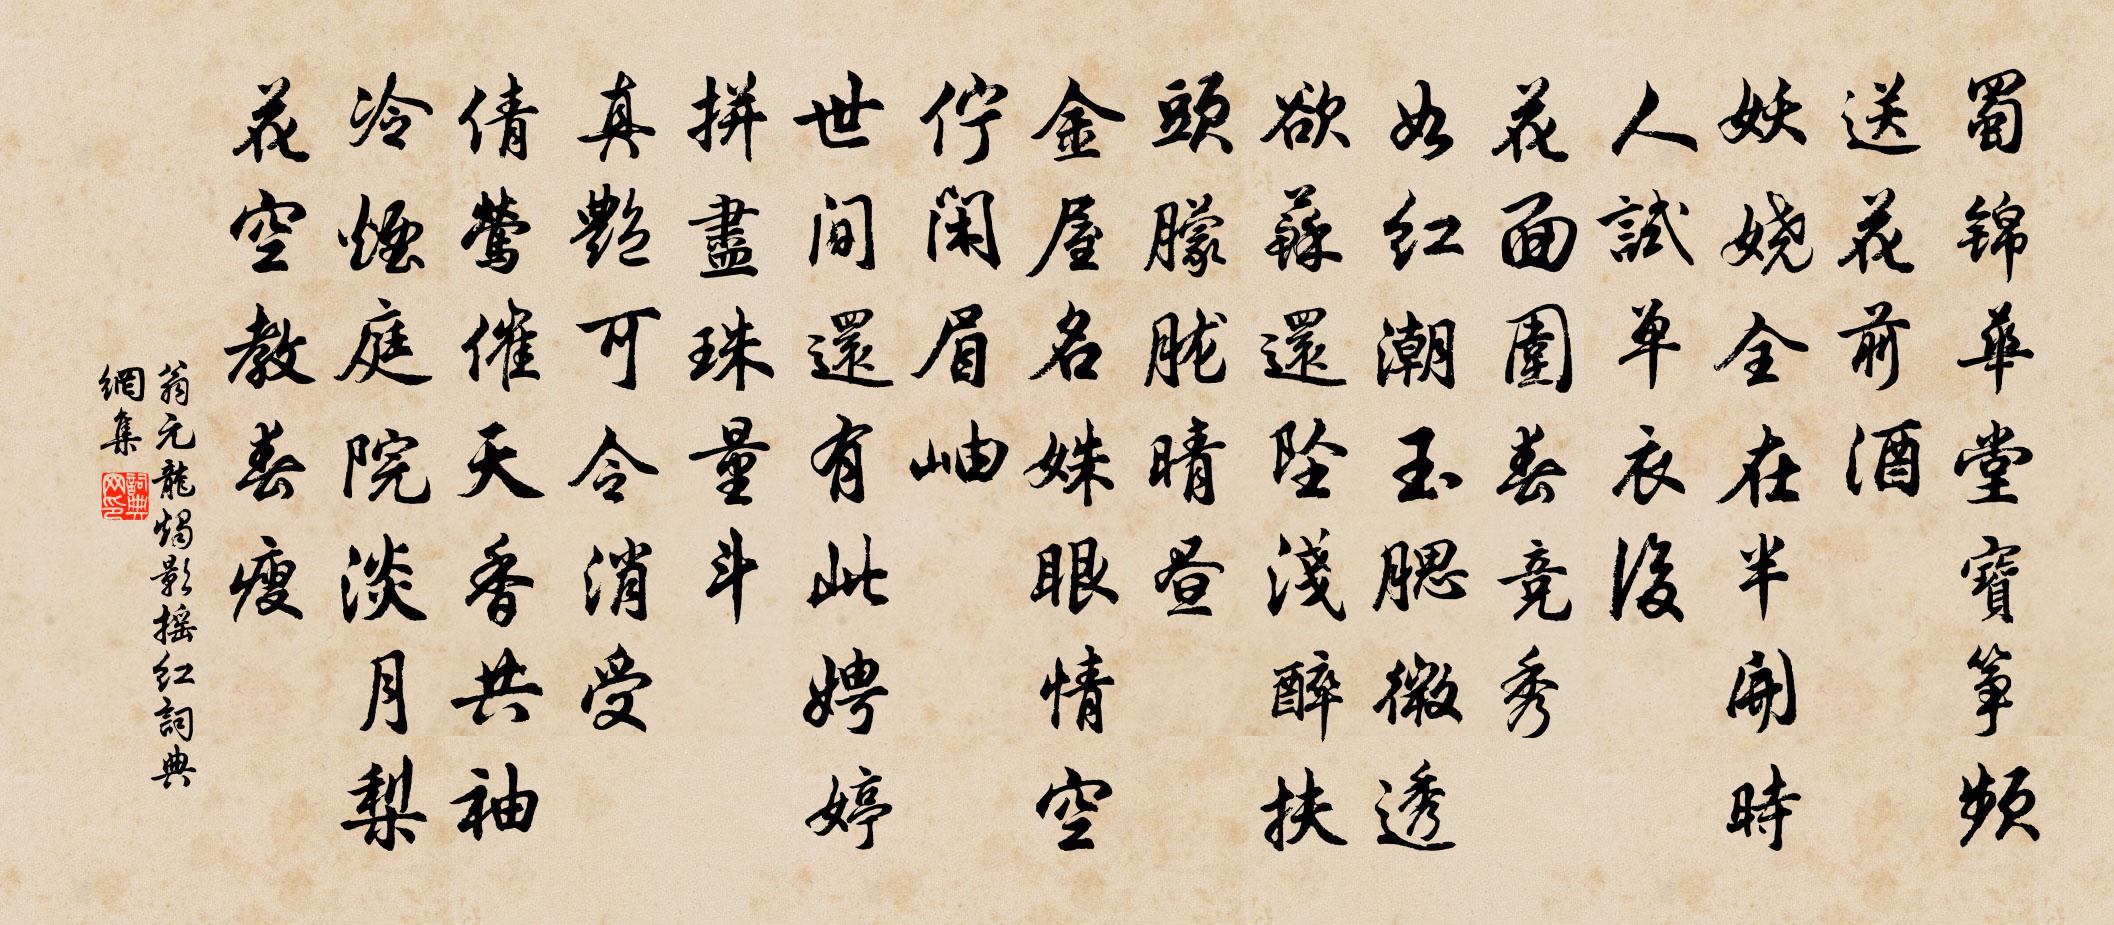 蜀锦華堂寶箏頻
送花前酒
妖娆全在半開時
人試单衣後
花面圍春竞秀
如红潮玉腮微透
欲蘇還坠淺醉扶
頭朦胧晴昼
金屋名姝眼情空
佇閑眉岫
世间還有此娉婷
拼盡珠量斗
真艷可令消受
倩莺催天香共袖
冷煙庭院淡月梨
花空教春瘦
翁元龍燭影摇红詞典
網集
詞典网印